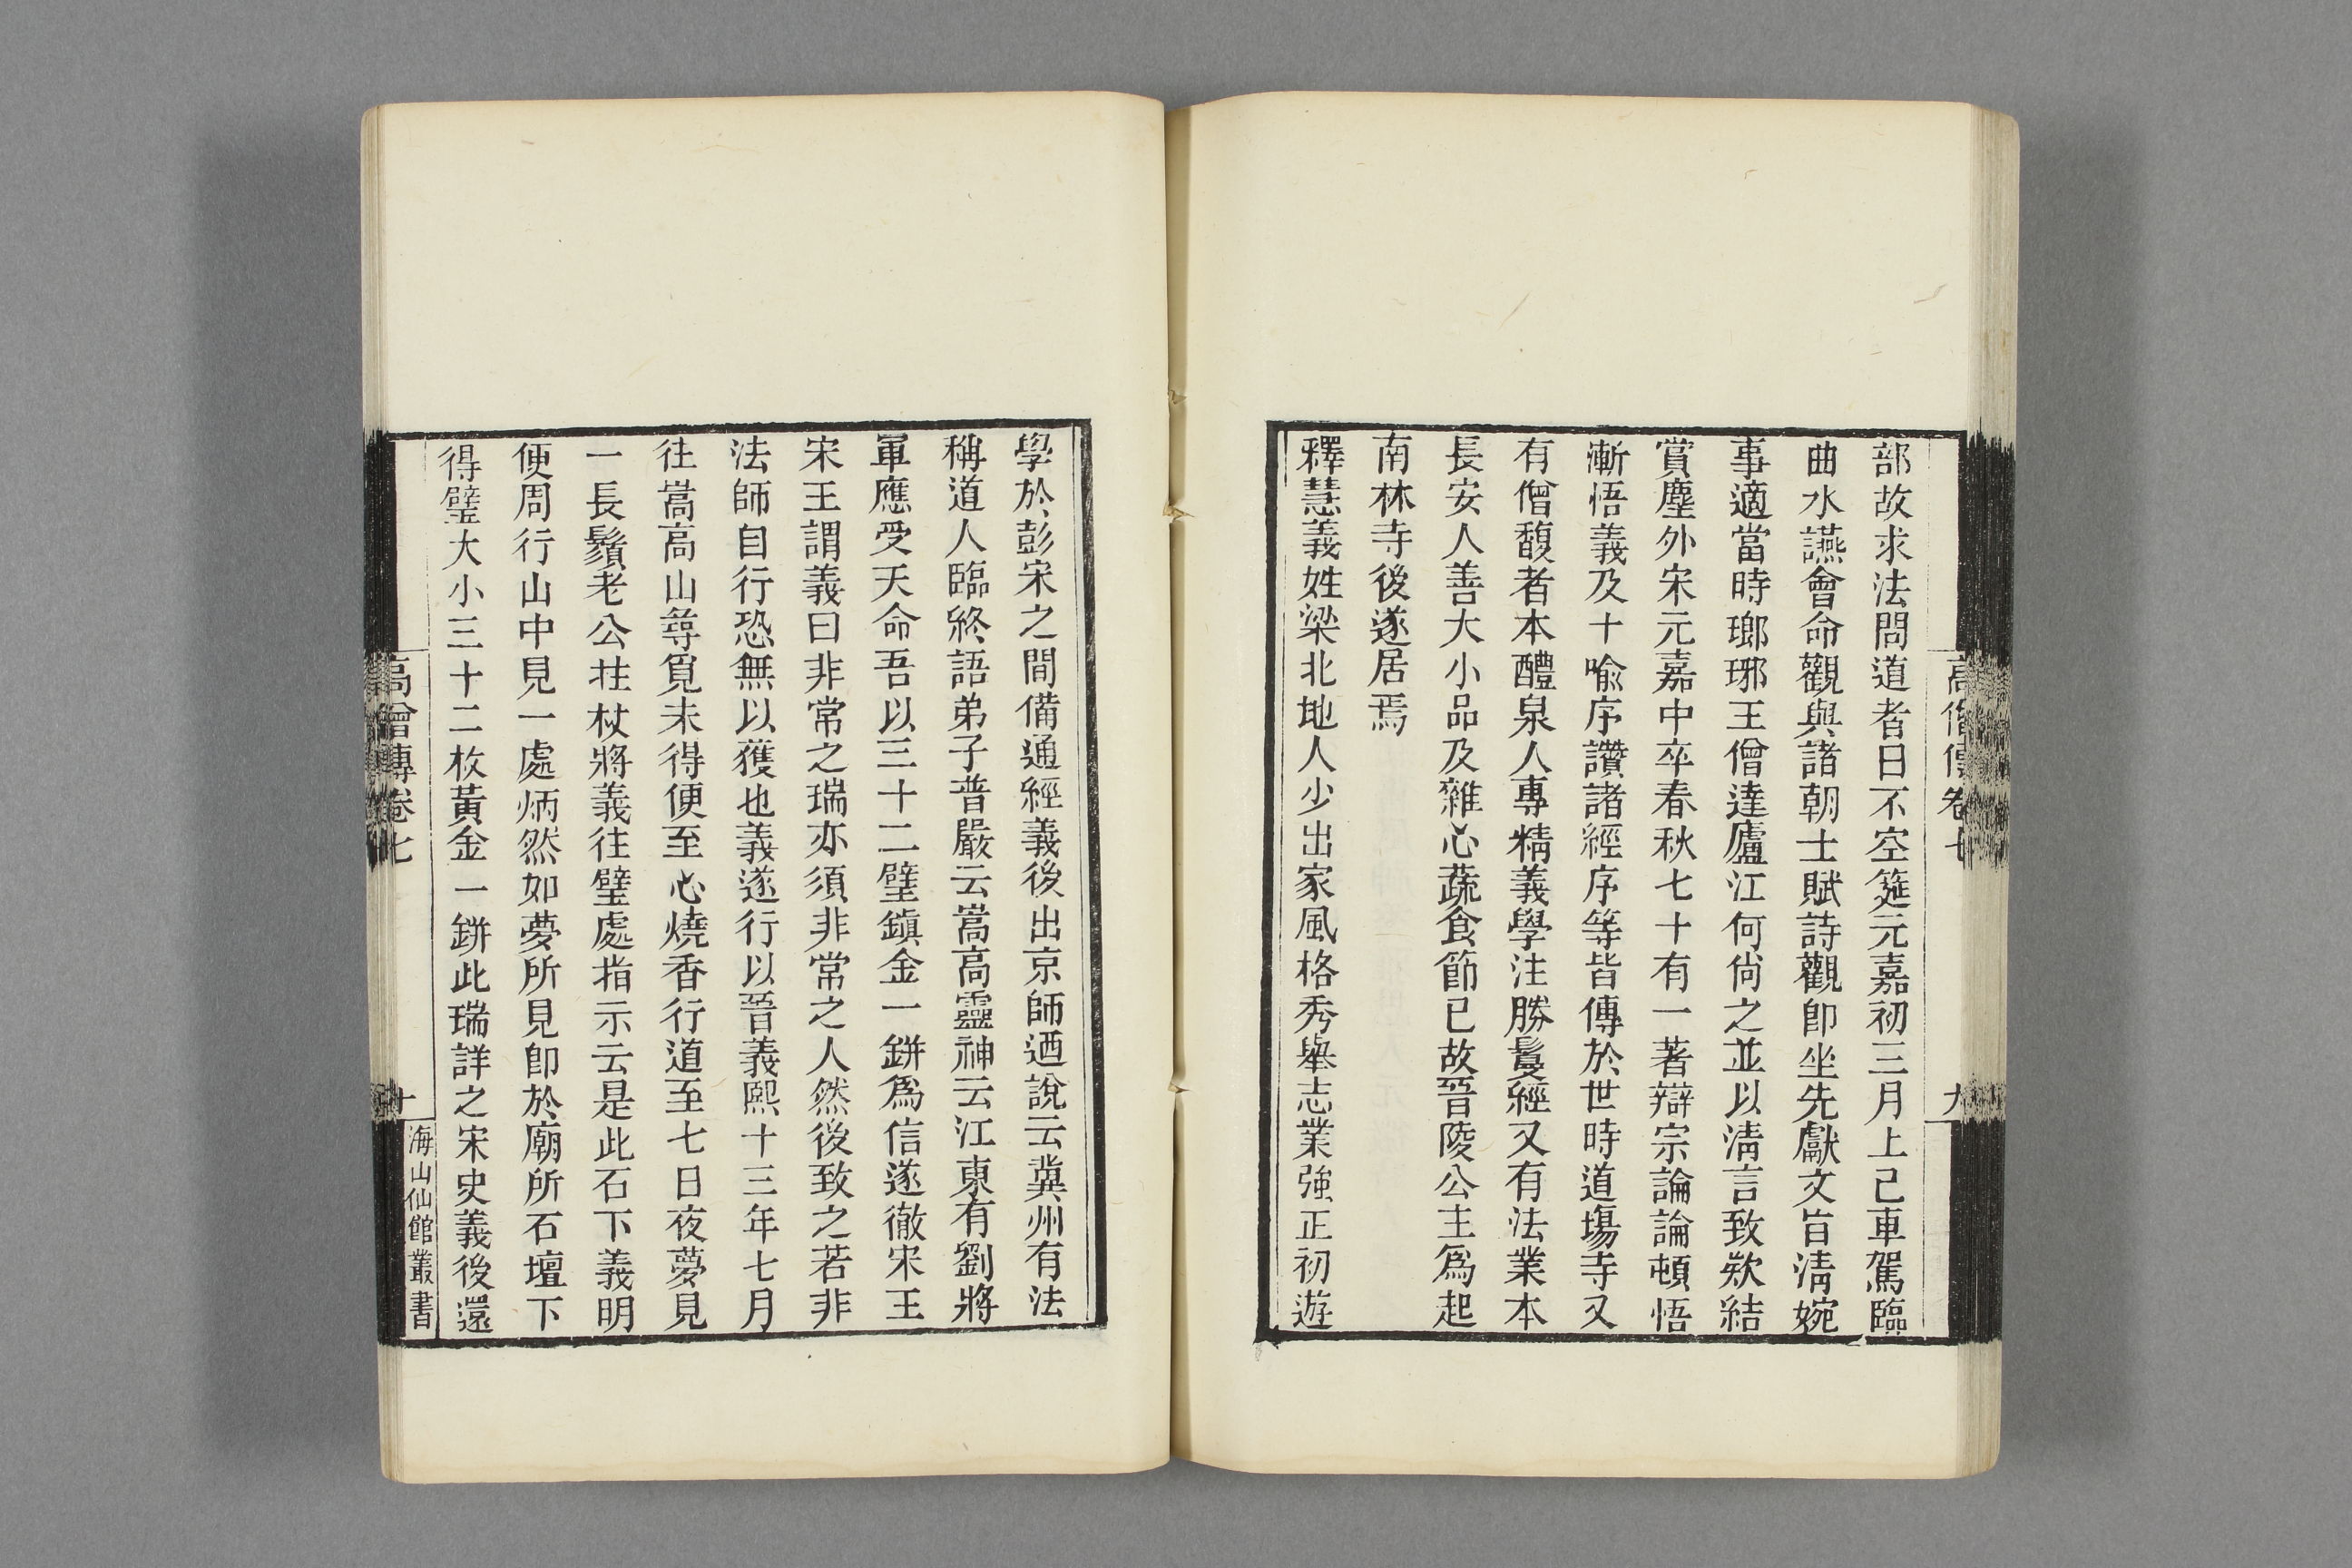 高僧傳卷七
九
部故求法問道者日不空筵元嘉初三月上巳車駕臨
曲水讌會命觀與諸朝士賦詩觀卽坐先獻文旨清婉
事適當時瑯琊王僧達廬江何尙之並以清言致欵結
賞塵外宋元嘉中卒春秋七十有一著辯宗論論頓悟
漸悟義及十喻序讚諸經序等皆傳於世時道場寺又
有僧馥者本醴泉人專精義學注勝鬘經又有法業本
長安人善大小品及雜心蔬食節已故晉陵公主爲起
南林寺後遂居焉
釋慧義姓梁北地人少出家風格秀舉志業強正初遊
學於彭宋之間備通經義後出京師迺說云冀州有法
稱道人臨終語弟子普嚴云嵩高靈神云江東有劉將
軍應受天命吾以三十二璧鎮金一鉼爲信遂徹宋王
宋王謂義曰非常之瑞亦須非常之人然後致之若非
法師自行恐無以獲也義遂行以晉義熙十三年七月
往嵩高山尋覓未得便至心燒香行道至七日夜夢見
一長鬚老公拄杖將義往璧處指示云是此石下義明
便周行山中見一處炳然如夢所見卽於廟所石壇下
得璧大小三十二枚黃金一鉼此瑞詳之宋史義後還
高僧傳卷七
十
海山仙館叢書